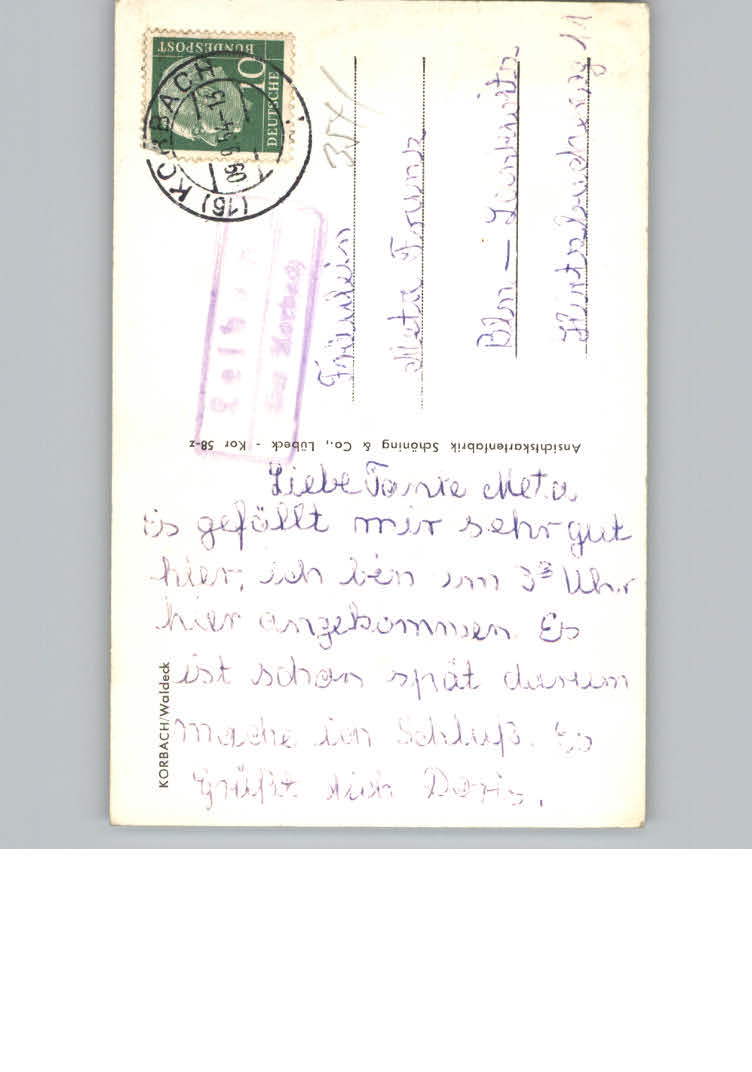 DEUTSCHE
BUNDESPOST
10
(16) KORBACH
60
über Korbach
354/
Fräulein
Meta
Bln — Lankwitz
11
Ansichtskartenfabrik Schöning & Co., Lübeck - Kor 58-z
Liebe Tante Meta
Es gefällt mir sehr gut
hier, ich bin um 3 Uhr
hier angekommen. Es
ist schon spät darum
mache ich Schluß. Es
Grüßt dich Doris.
KORBACH/Waldeck